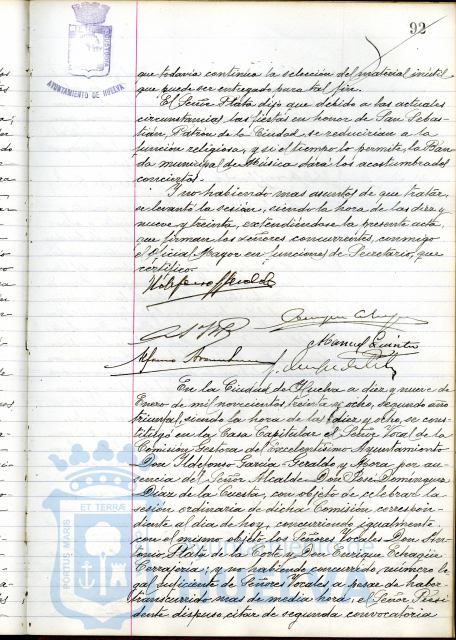 92
AYUNTAMIENTO DE HUELVA
que todavia continúa la selección del material inútil
que puede ser entregado para tal fin.
El Señor Plata dijo que debido a las actuales
circunstancias las fiestas en honor de San Sebas-
tián, Patrón de la Ciudad, se reducirian a la
función religiosa, y si el tiempo lo permite, la Ban-
da municipal de Música dará los acostumbrados
conciertos.
Y no habiendo mas asuntos de que tratar,
se levantó la sesión, siendo la hora de las diez y
nueve y treinta, extendiéndose la presente acta,
que firman los señores concurrentes, conmigo
el Oficial Mayor en funciones de Secretario, que
certifico.
Manuel Quintero
En la Ciudad de Huelva a diez y nueve de
Enero de mil novecientos treinta y ocho, segundo año
triunfal, siendo la hora de las diez y ocho, se cons-
tituyó en la Casa Capitular el Señor Vocal de la
Comisión Gestora del Excelentísimo Ayuntamiento
Don Ildefonso Garcia Geraldo y Mora por au-
sencia del Señor Alcalde Don José Dominguez
Diaz de la Cuesta, con objeto de celebrar la
sesión ordinaria de dicha Comisión correspon-
diente al dia de hoy, concurriendo igualmente
con el mismo objeto los Señores Vocales Don An-
tonio Plata de la Corte y Don Enrique Echagüe
Cerrajería; y no habiendo concurrido número le-
gal suficiente de Señores Vocales a pesar de haber
transcurrido mas de media hora, el Señor Presi-
dente dispuso, citar de segunda convocatoria
PORTUS MARIS ET TERRAE